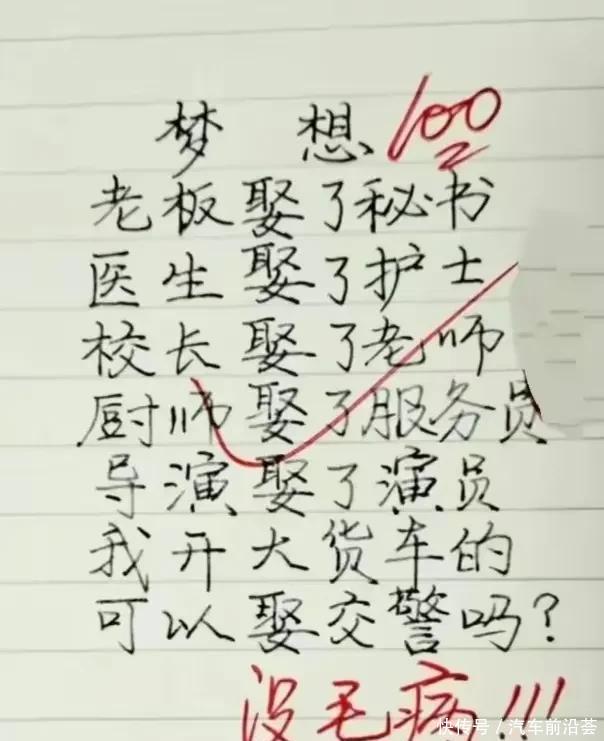 梦 想 100
老板娶了秘书
医生娶了护士
校长娶了老师
厨师娶了服务员
导演娶了演员
我开大货车的
可以娶交警吗?
没毛病!!!
快传号/汽车前沿荟